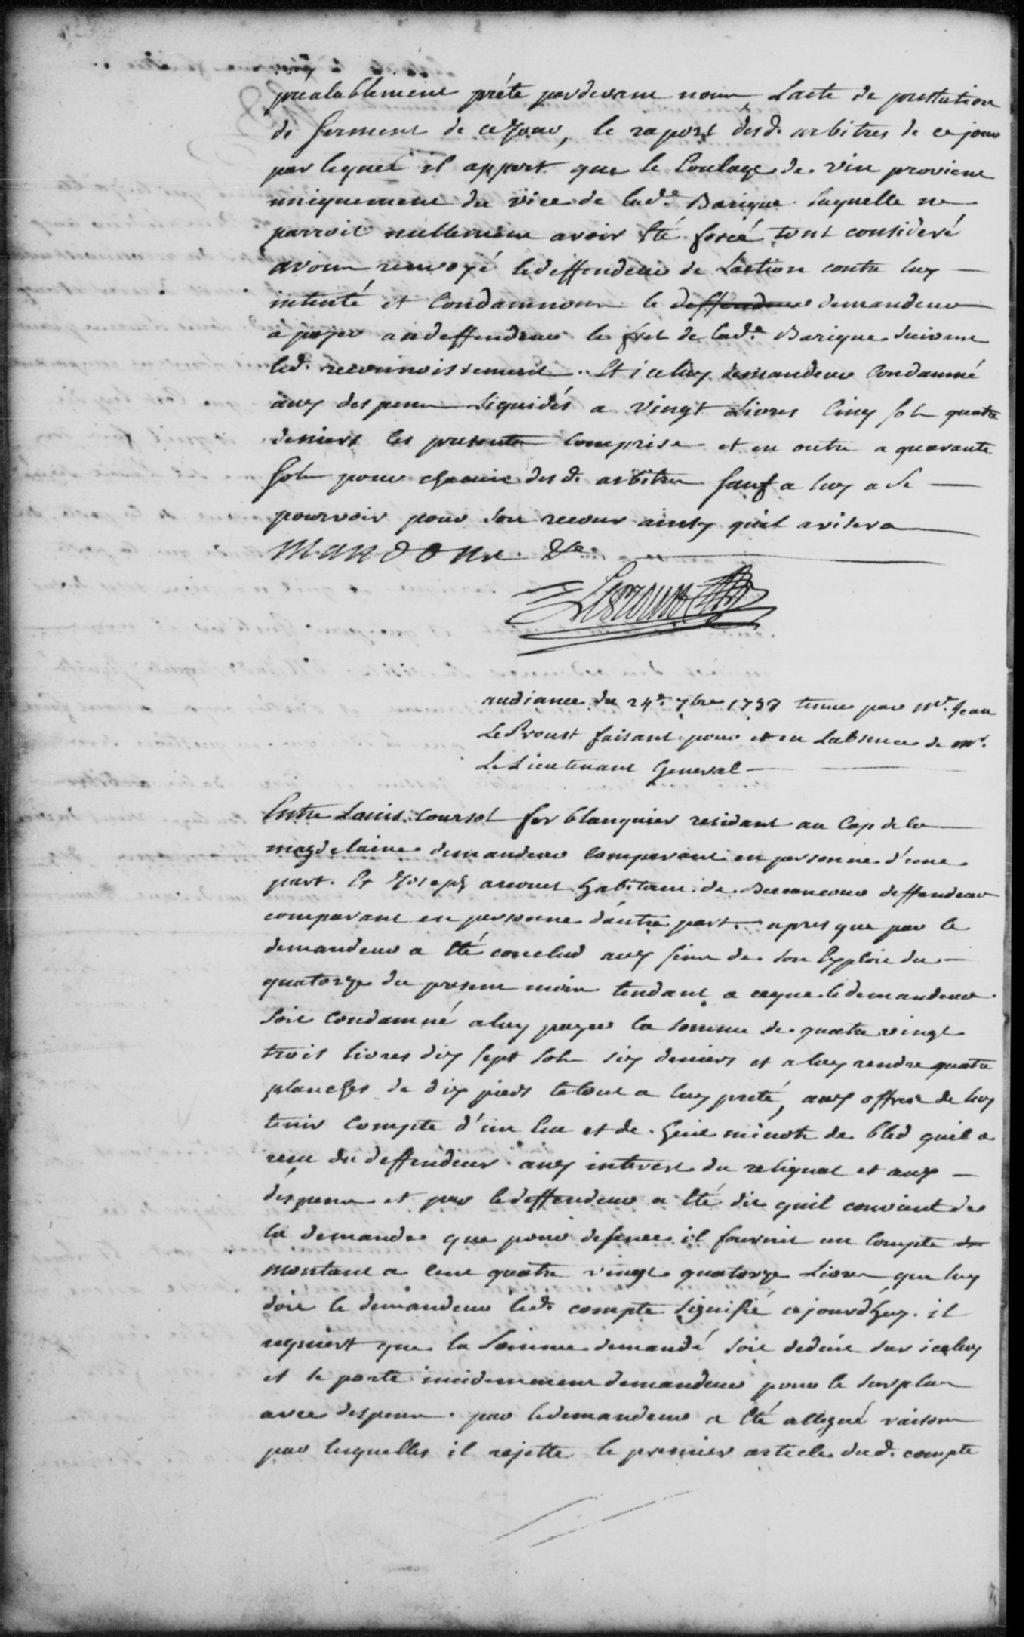 préalablement prêté pardevant nous, Lacte de prestation
de serment de ce jour, le raport desd. arbitres de ce jour
par lequel il appert que le Coulage de vin provient
uniquement du vice de lad.e Barique laquelle ne
parroit nullement avoir été forcé tout consideré
avons renvoyé ledeffendeur de Laction contre luy
intenté et Condamnons le deffendeur demandeur
a payer au deffendeur le fret de lad.e Barique suivant
led. reconnoissement. Et iceluy demandeur Condamné
aux despens Liquidés a vingt Livres Cinq sols quatre
deniers les presentes Comprises et en outre a quarante
sols pour chacun desd. arbitres sauf a luy a se
pourvoir pour son recours ainsy quil avisera
Mandons &c.
audiance du 24e 7bre 1738 tenue par Mr. Jean
LeProust faisant pour et en Labsence de Mr.
Le Lieutenant General
Entre Louis Coursol ferblanquier residant au Cap de la
magdelaine demandeur comparant en personne d'une
part. Et Joseph arcouet habitant de Becancour deffendeur
comparant en personne dautre part. apres que par le
demandeur a été conclud aux fins de son Exploit du
quatorze du present mois tendant a ceque le demandeur
soit Condamné aluy payer la somme de quatre vingt
trois livres dix sept sols six deniers et a luy rendre quatre
planches de dix pieds letout a luy preté, aux offres de luy
tenir Compte d'un Lit et de huit minots de bled quil a
reçu du deffendeur aux interest du reliquat et aux
despens et par ledeffendeur a été dit quil convient de
la demande que pour defense il fournit un Compte de
montant a Cent quatre vingt quatorze Livres que luy
doit le demandeur led. compte signifié cejourdhuy. il
requiert que la Somme demandé soit deduite sur iceluy
et se porte incidemment demandeur pour le surplus
avec despens. par ledemandeur a été allegué raisons
par lesquelles il rejette le premier article dud. compte